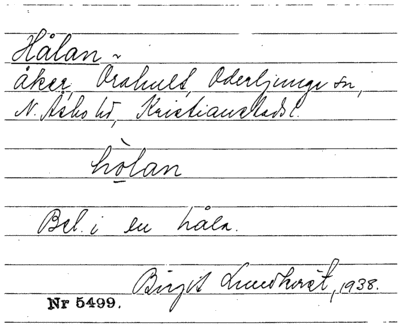 Hålan ~
åker, Orahult, Oderljunga sn,
N. Åsbo hd, Kristianstads l.
hòlan
Bel. i en håla.
Birgit Lundkvist, 1938.
Nr 5499.